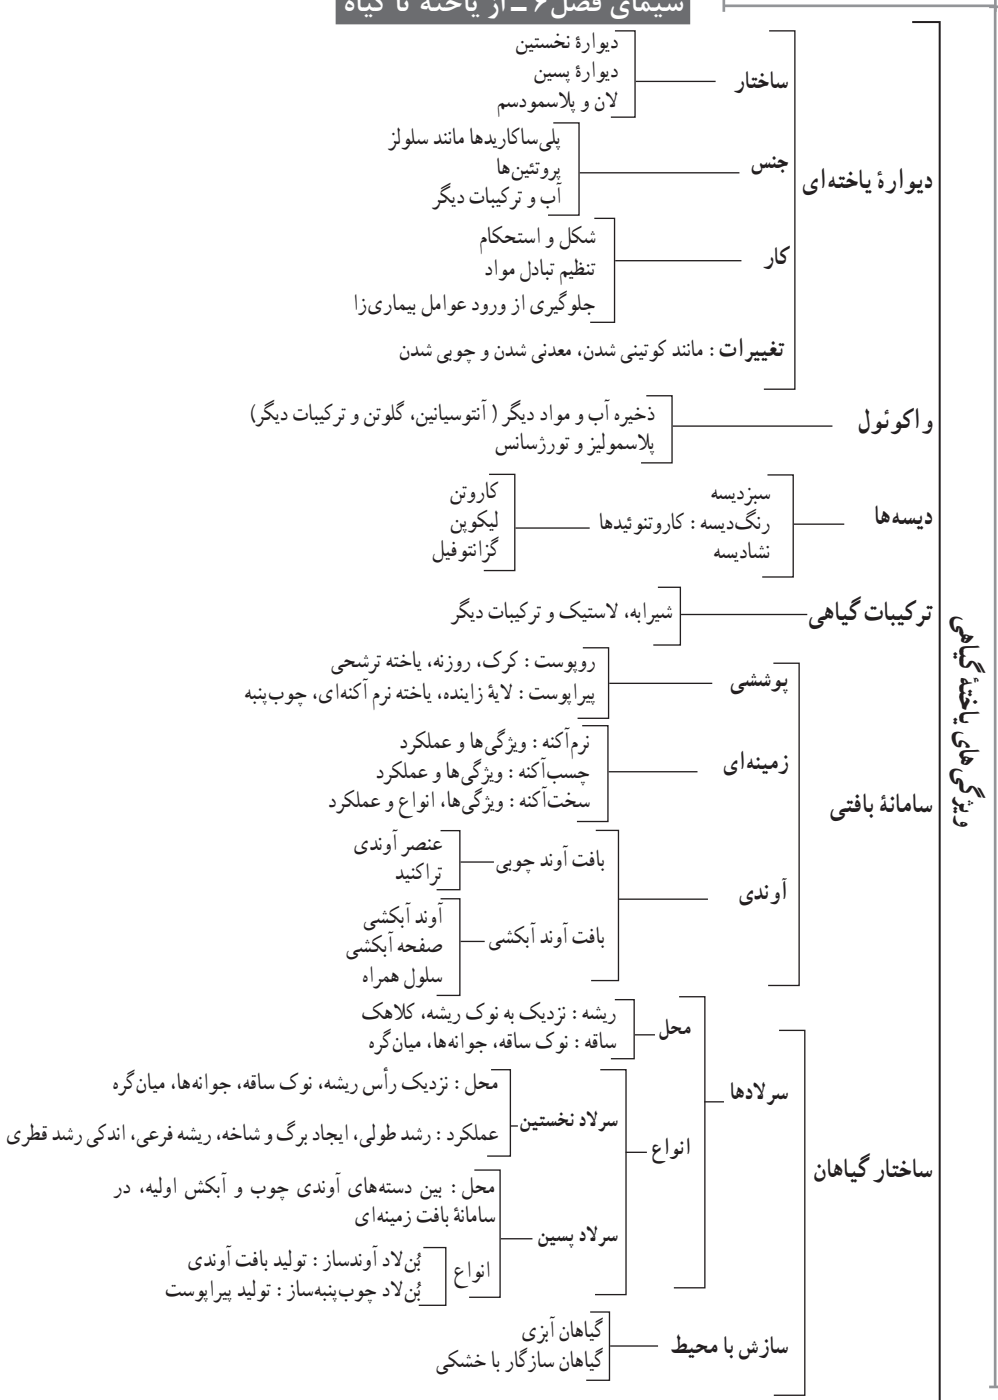 سیمای فصل ۶ ــ از یاخته تا گیاه
ویژگی‌های یاختهٔ گیاهی
دیوارهٔ یاخته‌ای
ساختار
دیوارهٔ نخستین
دیوارهٔ پسین
لان و پلاسمودسم
جنس
پلی‌ساکاریدها مانند سلولز
پروتئین‌ها
آب و ترکیبات دیگر
کار
شکل و استحکام
تنظیم تبادل مواد
جلوگیری از ورود عوامل بیماری‌زا
تغییرات : مانند کوتینی شدن، معدنی شدن و چوبی شدن
واکوئول
ذخیره آب و مواد دیگر ( آنتوسیانین، گلوتن و ترکیبات دیگر)
پلاسمولیز و تورژسانس
دیسه‌ها
سبزدیسه
رنگ‌دیسه : کاروتنوئیدها
نشادیسه
کاروتن
لیکوپن
گزانتوفیل
ترکیبات گیاهی
شیرابه، لاستیک و ترکیبات دیگر
سامانهٔ بافتی
پوششی
روپوست : کرک، روزنه، یاخته ترشحی
پیراپوست : لایهٔ زاینده، یاخته نرم آکنه‌ای، چوب‌پنبه
زمینه‌ای
نرم‌آکنه : ویژگی‌ها و عملکرد
چسب‌آکنه : ویژگی‌ها و عملکرد
سخت‌آکنه : ویژگی‌ها، انواع و عملکرد
آوندی
بافت آوند چوبی
عنصر آوندی
تراکئید
بافت آوند آبکشی
آوند آبکشی
صفحه آبکشی
سلول همراه
ساختار گیاهان
سرلادها
محل
ریشه : نزدیک به نوک ریشه، کلاهک
ساقه : نوک ساقه، جوانه‌ها، میان‌گره
انواع
سرلاد نخستین
محل : نزدیک رأس ریشه، نوک ساقه، جوانه‌ها، میان‌گره
عملکرد : رشد طولی، ایجاد برگ و شاخه، ریشه فرعی، اندکی رشد قطری
سرلاد پسین
محل : بین دسته‌های آوندی چوب و آبکش اولیه، در
سامانهٔ بافت زمینه‌ای
انواع
بُن‌لاد آوندساز : تولید بافت آوندی
بُن‌لاد چوب‌پنبه‌ساز : تولید پیراپوست
سازش با محیط
گیاهان آبزی
گیاهان سازگار با خشکی